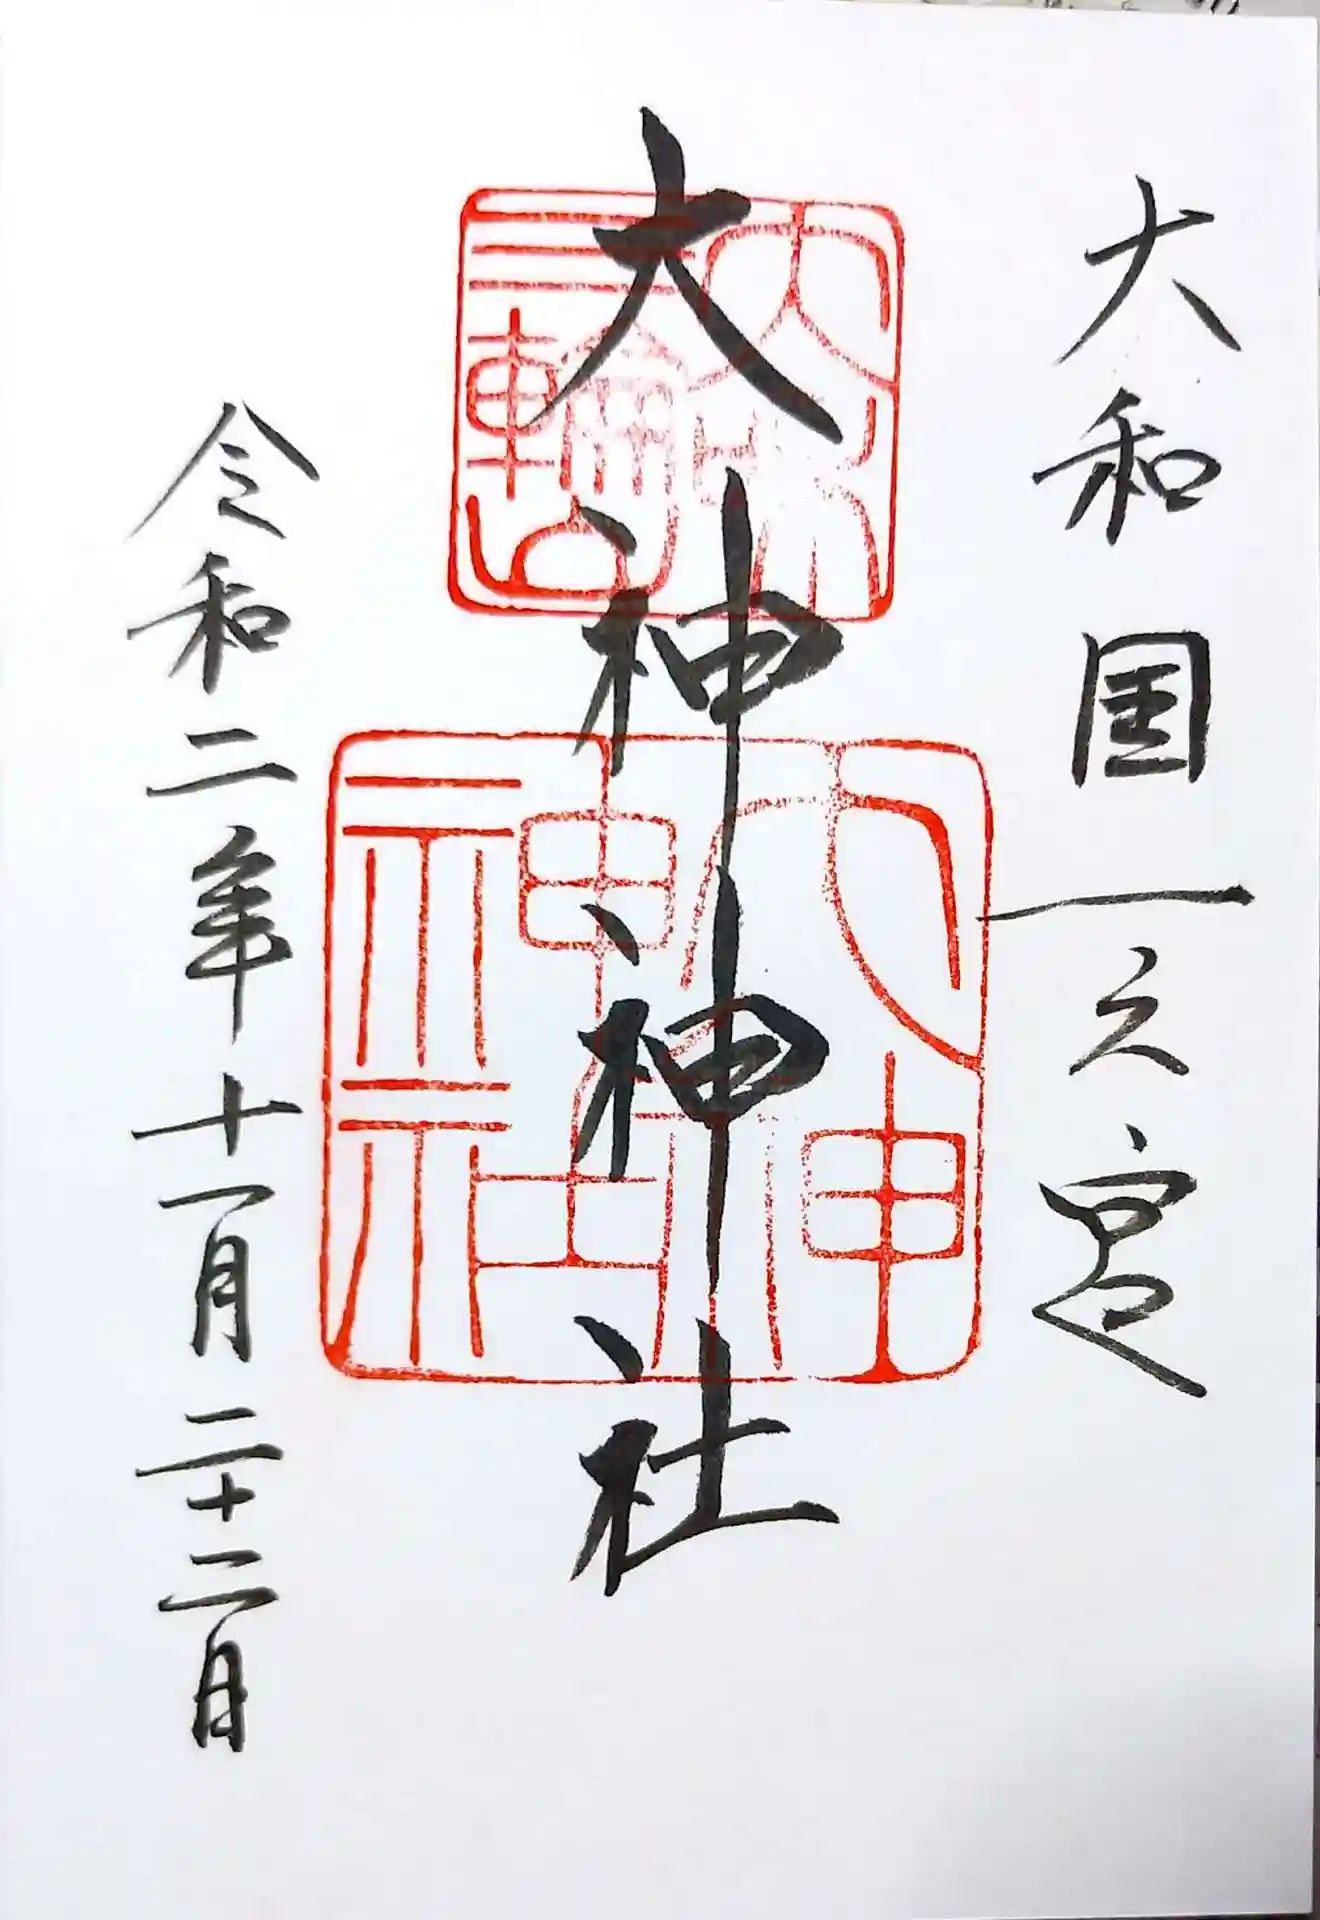 大和国一之宮
大神神社
大神
神社
令和二年十一月二十二日